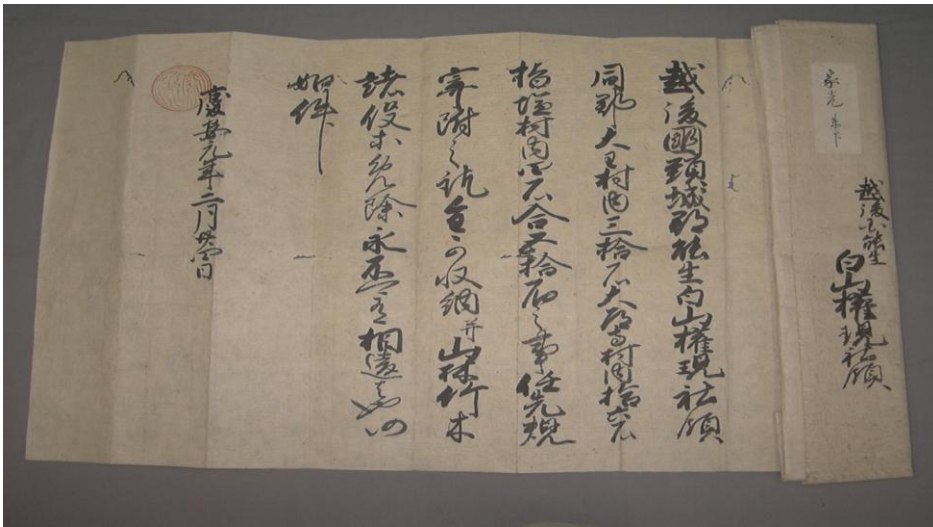 家光
越後国能生
白山権現社領
越後国頸城郡能生白山権現社領
同郡大王村内三拾石大村内拾六石
指塩村内四石合五拾石之事任先規
寄附之訖全可収納并山林竹木
諸役等免除永不可有相違者也仍
如件
慶安元年二月廿四日